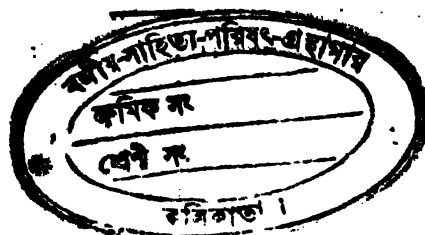 বঙ্গীয়-সাহিত্য-পরিষৎ-গ্রন্থাগার
ক্রমিক নং
শ্রেণী নং
কলিকাতা।